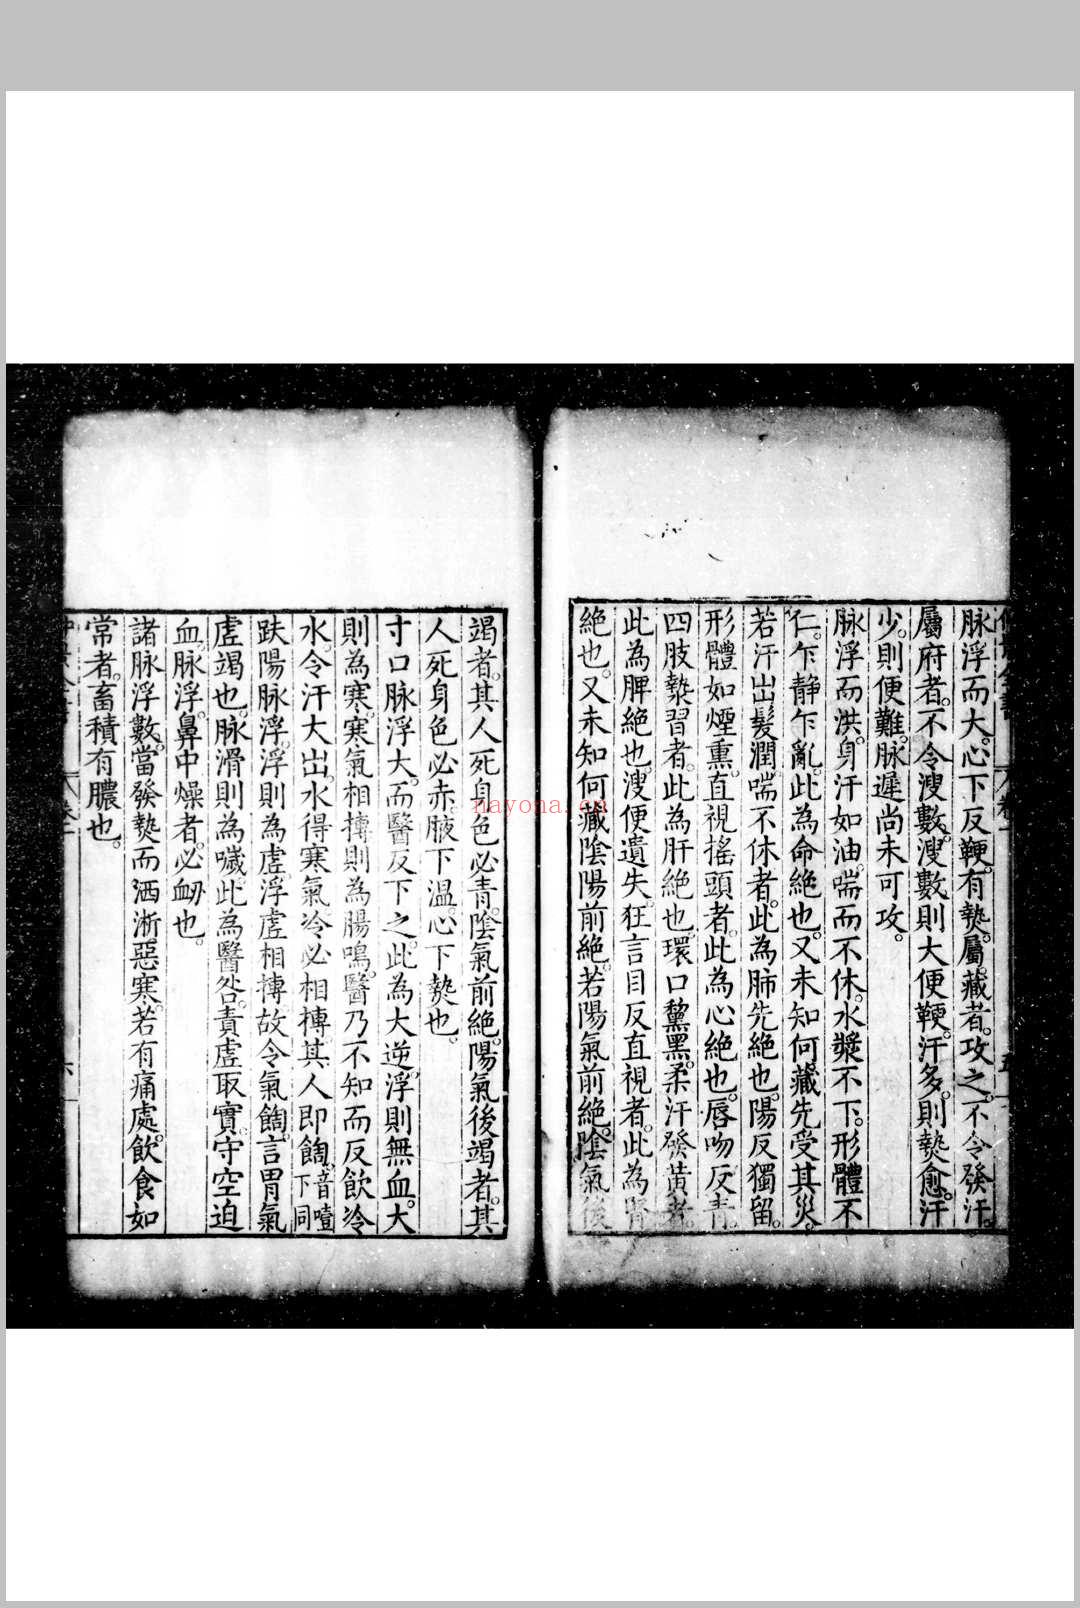 脉浮而大。心下反鞕。有熱。屬藏者。攻之。不令發汗。
屬府者。不令溲數。溲數則大便鞕。汗多。則熱愈。汗
少。則便難。脉遲尚未可攻。
脉浮而洪。身汗如油。喘而不休。水漿不下。形體不
仁。乍靜乍亂。此為命絶也。又未知何藏先受其災。
若汗出髮潤。喘不休者。此為肺先絶也。陽反獨留。
形體如煙熏。直視搖頭者。此為心絶也。唇吻反青。
四肢漐習者。此為肝絶也。環口黧黑。柔汗發黃者。
此為脾絶也。溲便遺失。狂言目反直視者。此為腎
絶也。又未知何藏陰陽前絶。若陽氣前絶。陰氣後
竭者。其人死身色必青。陰氣前絶。陽氣後竭者。其
人死身色必赤。腋下溫。心下熱也。
寸口脉浮大。而醫反下之。此為大逆。浮則無血。大
則為寒。寒氣相搏則為腸鳴。醫乃不知而反飲冷
水。令汗大出。水得寒氣冷必相搏。其人即䭇。音噎下同
趺陽脉浮。浮則為虛。浮虛相搏故令氣䭇。言胃氣
虛竭也。脉滑則為噦。此為醫咎。責虛取實。守空迫
血。脉浮。鼻中燥者。必衂也。
諸脉浮數。當發熱而洒淅惡寒。若有痛處。飲食如
常者。畜積有膿也。
nayona.cn